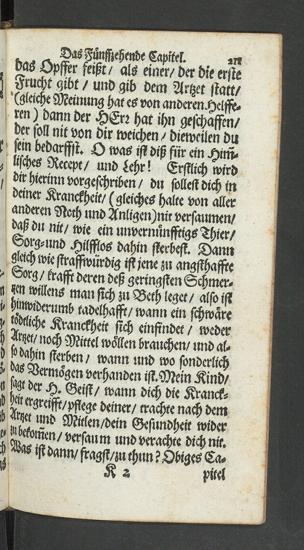 Das Fünffzehende Capitel. 211
das Opffer feißt / als einer / der die erste
Frucht gibt / und gib dem Artzet statt /
(gleiche Meinung hat es von anderen Helffe-
ren) dann der HErz hat ihn geschaffen /
der soll nit von dir weichen / dieweilen du
sein bedarffst. O was ist diß für ein Him̃-
lisches Recept / und Lehr! Erstlich wird
dir hierinn vorgeschriben / du sollest dich in
deiner Kranckheit / (gleiches halte von aller
anderen Noth und Anligen) nit versaumen /
daß du nit / wie ein unvernünfftigs Thier /
Sorg- und Hilffloß dahin sterbest. Dann
gleich wie straffwürdig ist jene zu angsthaffte
Sorg / krafft deren deß geringsten Schmer-
tzen willens man sich zu Beth leget / also ist
hinwiderumb tadelhafft / wann ein schwäre
tödtliche Kranckheit sich einfindet / weder
Artzet / noch Mittel wöllen brauchen / und al-
so dahin sterben / wann und wo sonderlich
das Vermögen verhanden ist. Mein Kind /
sagt der H. Geist / wann dich die Kranck-
heit ergreifft / pflege deiner / trachte nach dem
Artzet und Mitlen / dein Gesundheit wider
zu bekom̃en / versaum und verachte dich nit.
Was ist dann / fragst / zu thun? Obiges Ca-
K 2 pitel